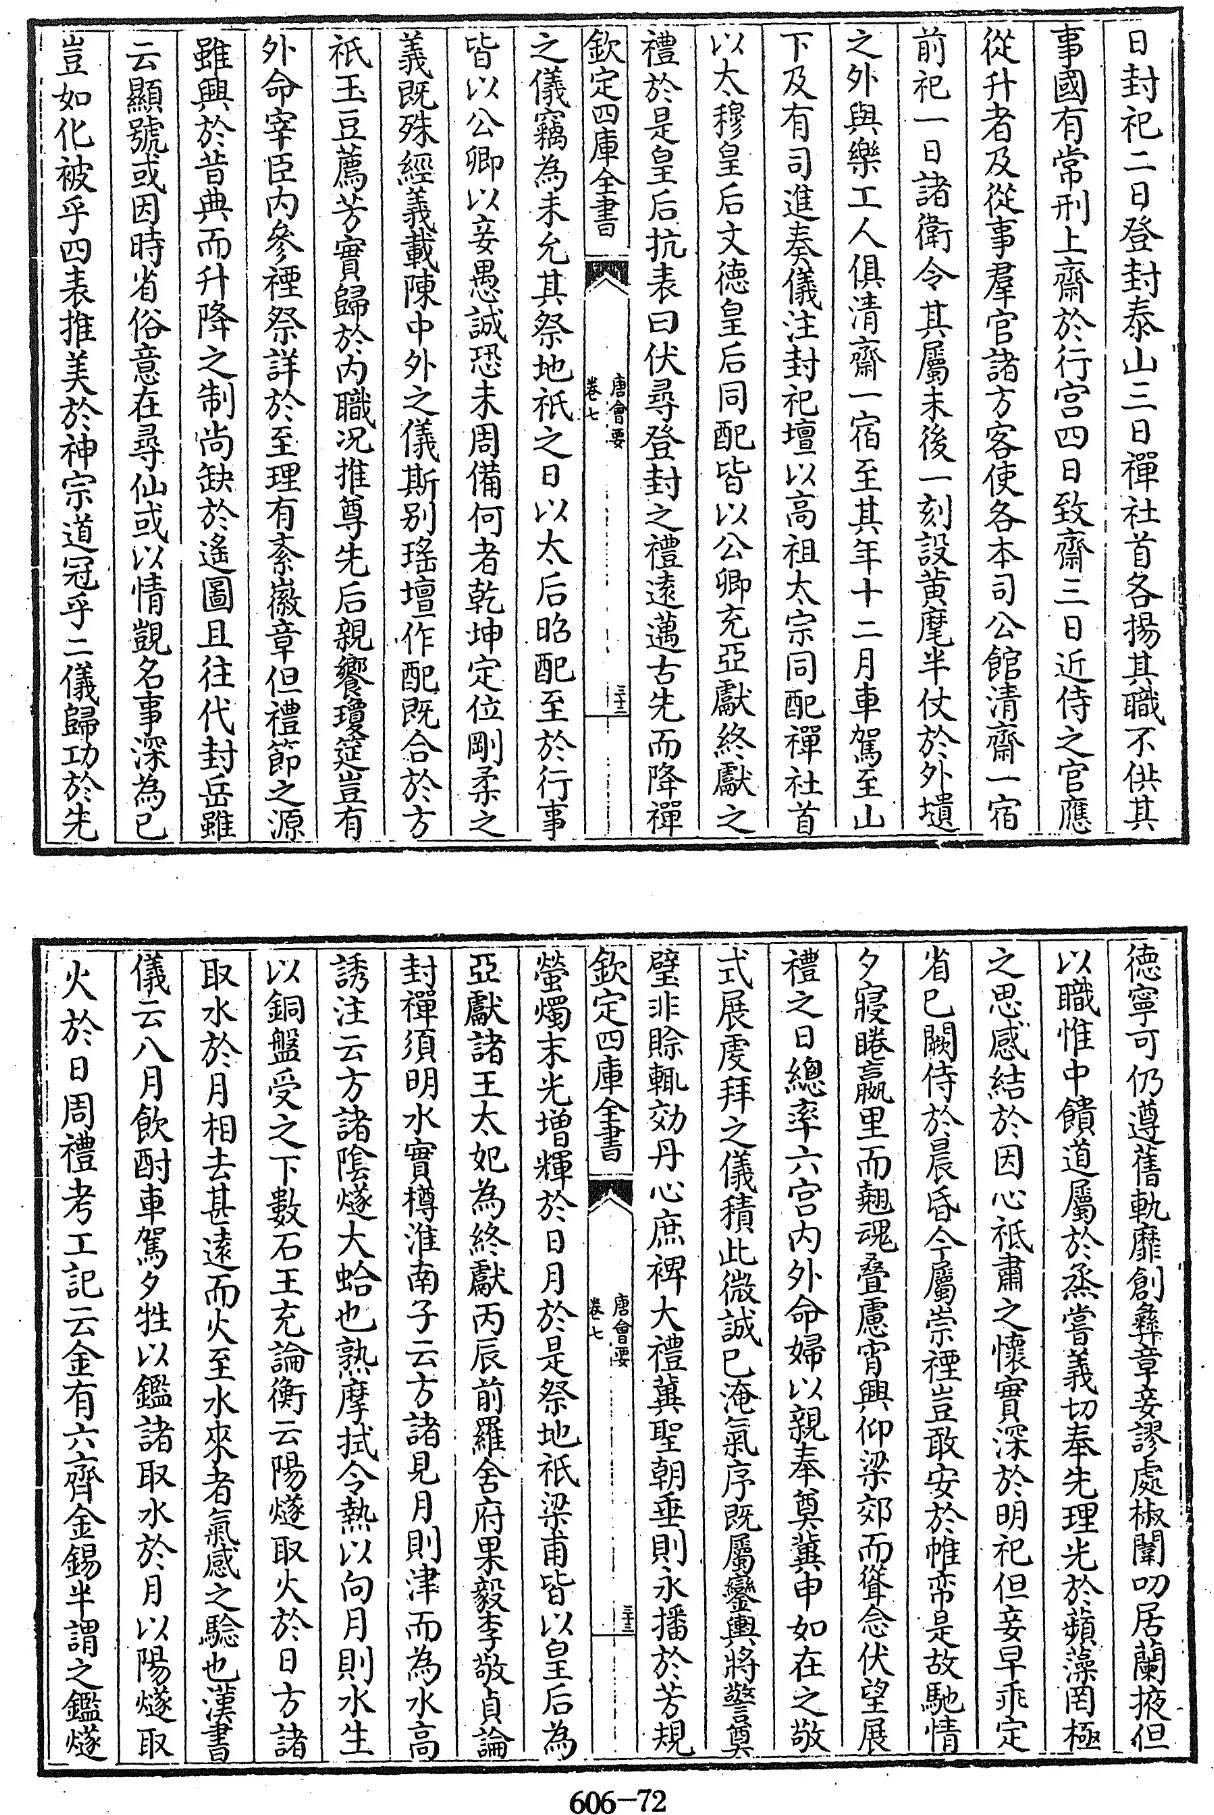 日封祀二日登封泰山三日禪社首各揚其職不供其
事國有常刑上齋於行宮四日致齋三日近侍之官應
從升者及從事羣官諸方客使各本司公館清齋一宿
前祀一日諸衛令其屬未後一刻設黃麾半仗於外壝
之外與樂工人俱清齋一宿至其年十二月車駕至山
下及有司進奏儀注封祀壇以高祖太宗同配禪社首
以太穆皇后文德皇后同配皆以公卿充亞獻終獻之
禮於是皇后抗表曰伏尋登封之禮遠邁古先而降禪
欽定四庫全書
唐會要
卷七
三十二
之儀竊為未允其祭地祇之日以太后昭配至於行事
皆以公卿以妾愚誠恐未周備何者乾坤定位剛柔之
義既殊經義載陳中外之儀斯别瑤壇作配既合於方
祇玉豆薦芳實歸於内職况推尊先后親饗瓊筵豈有
外命宰臣内參禋祭詳於至理有紊徽章但禮節之源
雖興於昔典而升降之制尚缺於遙圖且往代封岳雖
云顯號或因時省俗意在尋仙或以情覬名事深為己
豈如化被乎四表推美於神宗道冠乎二儀歸功於先
德寧可仍遵舊軌靡創彝章妾謬處椒闈叨居蘭掖但
以職惟中饋道屬於烝嘗義切奉先理光於蘋藻罔極
之思感結於因心祗肅之懷實深於明祀但妾早乖定
省已闕侍於晨昏今屬崇禋豈敢安於帷帟是故馳情
夕寢睠嬴里而翹魂叠慮宵興仰梁郊而聳念伏望展
禮之日總率六宫内外命婦以親奉奠冀申如在之敬
式展虔拜之儀積此微誠已淹氣序既屬鑾輿將警奠
璧非賒輒効丹心庶裨大禮冀聖朝垂則永播於芳規
欽定四庫全書
唐會要
卷七
三十三
螢燭末光增輝於日月於是祭地祇梁甫皆以皇后為
亞獻諸王太妃為終獻丙辰前羅舍府果毅李敬貞論
封禪須明水實樽淮南子云方諸見月則津而為水高
誘注云方諸陰燧大蛤也熟摩拭令熱以向月則水生
以銅盤受之下數石王充論衡云陽燧取火於日方諸
取水於月相去甚遠而火至水來者氣感之驗也漢書
儀云八月飲酎車駕夕牲以鑑諸取水於月以陽燧取
火於日周禮考工記云金有六齊金錫半謂之鑑燧
606-72